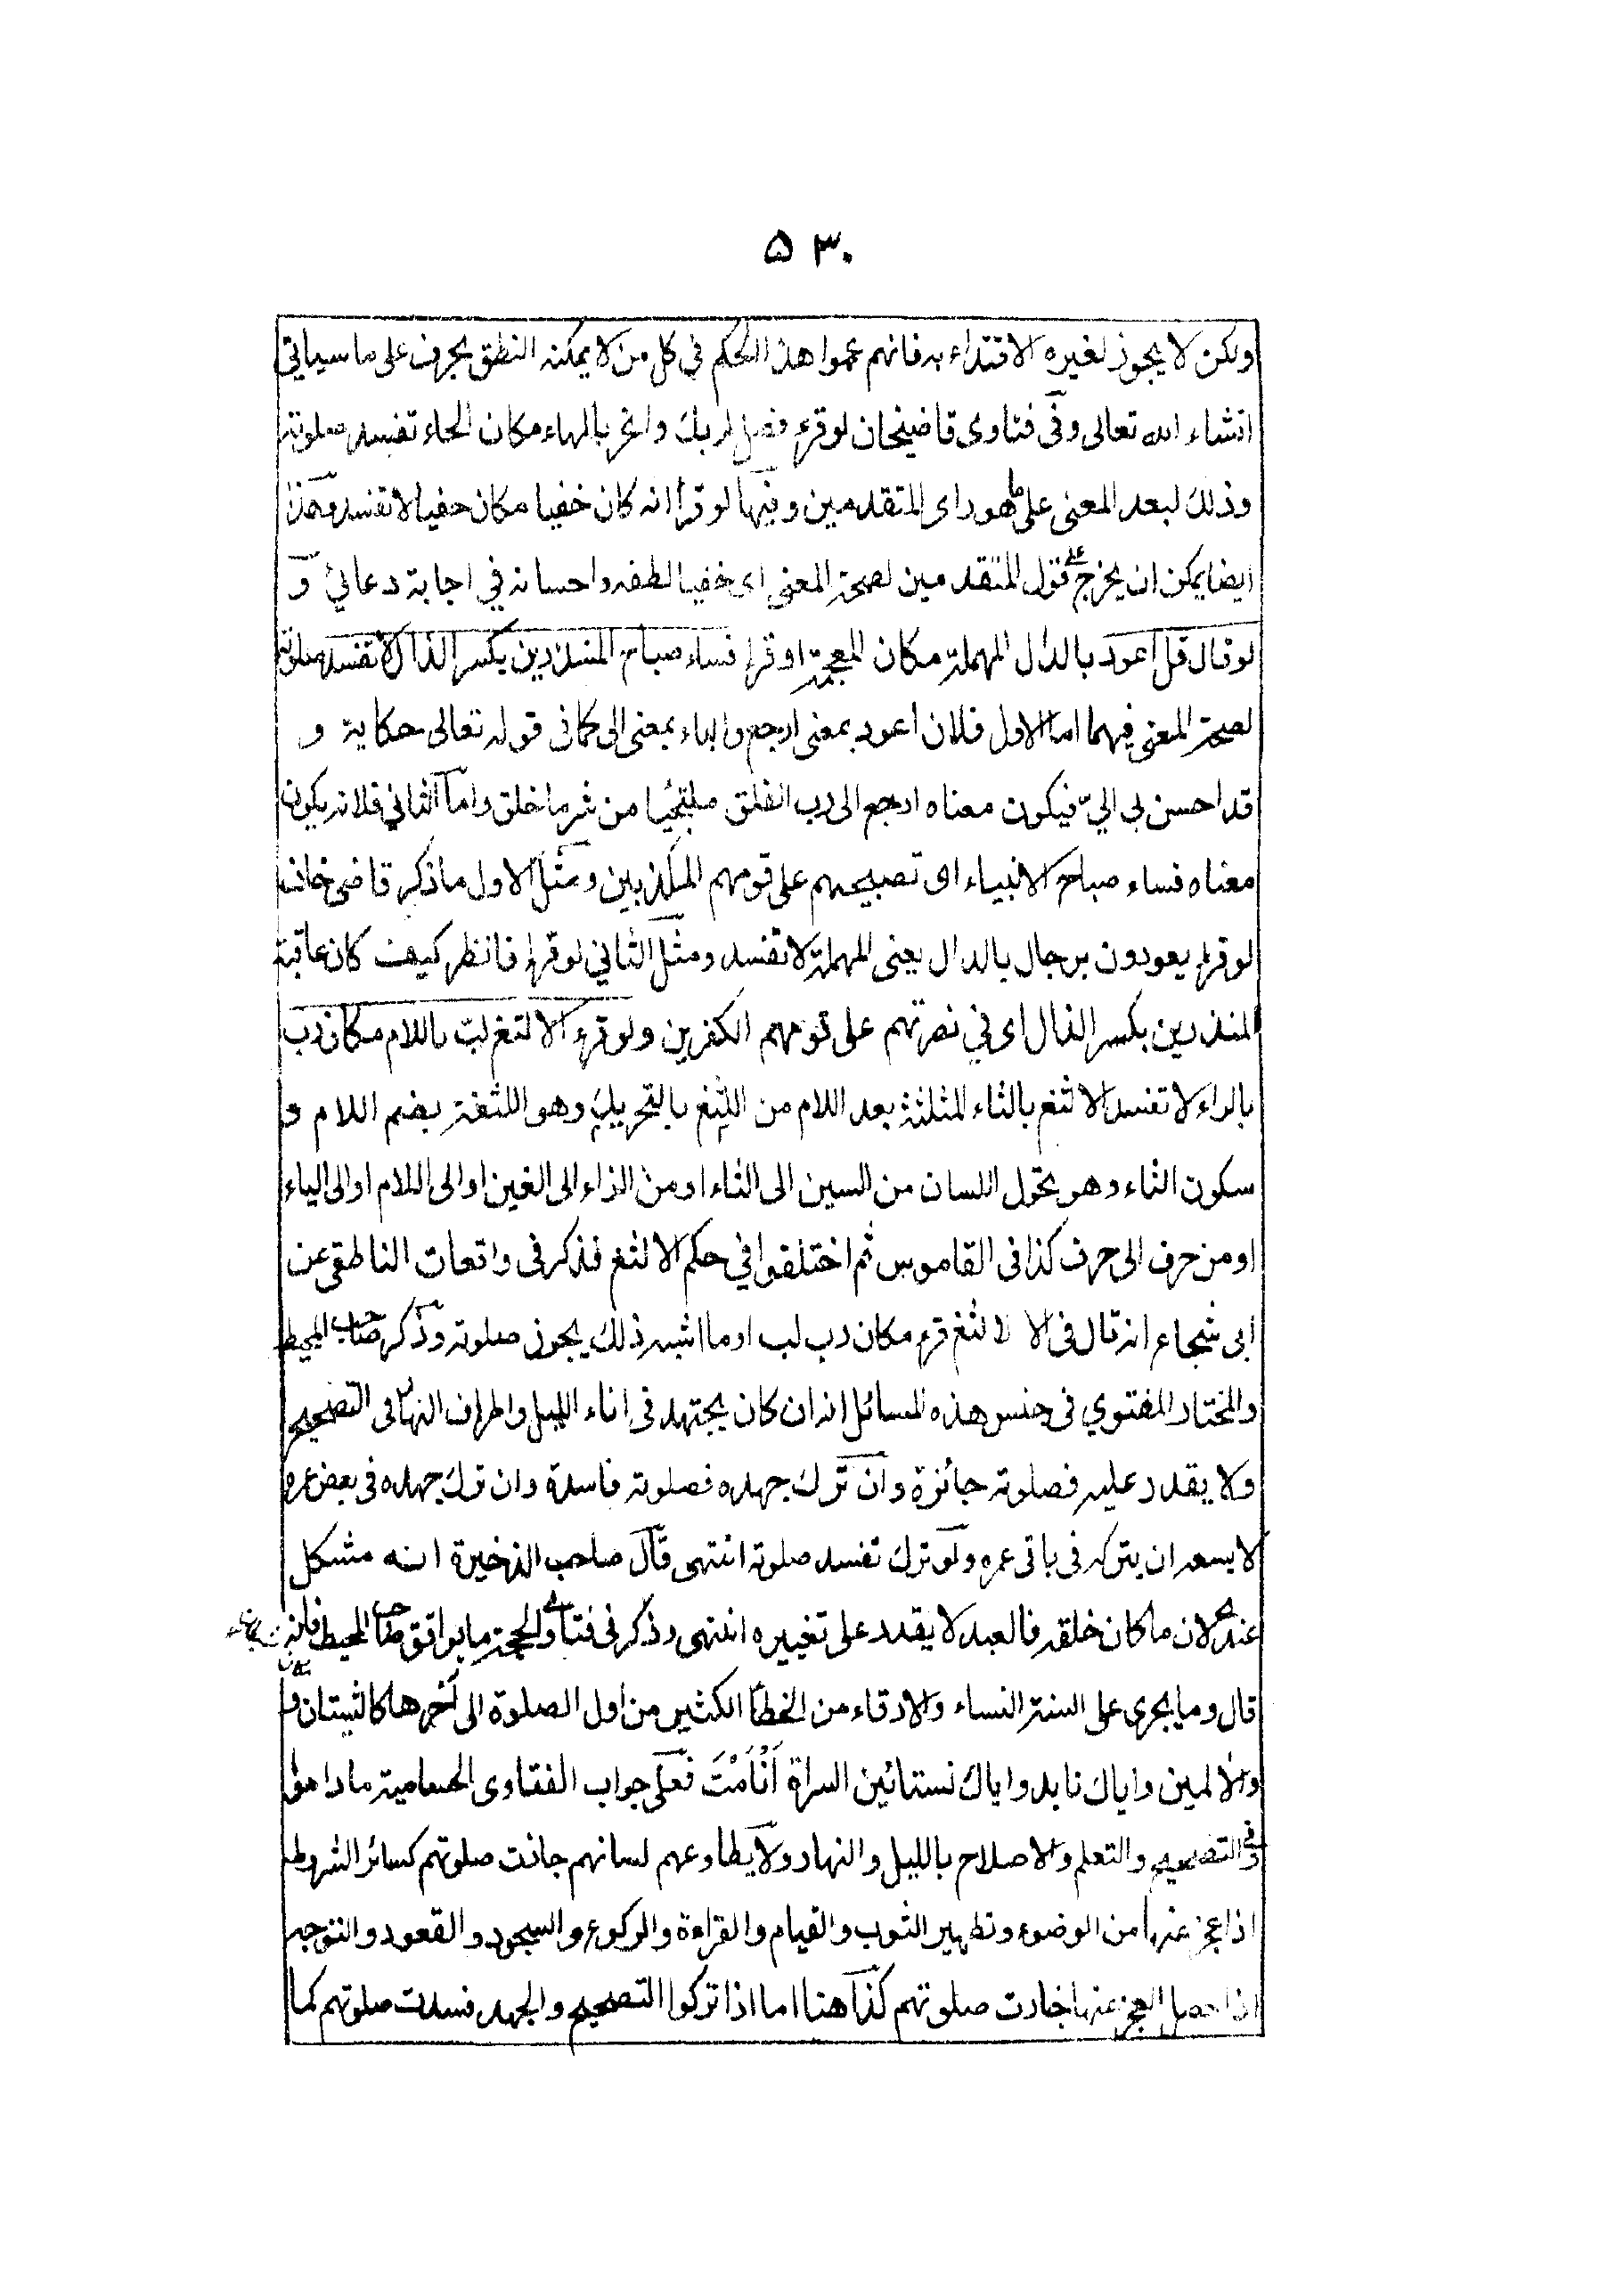 ٥٣٠
ولكن لا يجوز لغيره الاقتداء به فانهم عمموا هذا الحكم في كل من لا يمكنه النطق بحرف على ما سيأتي
انشاء الله تعالى وفى فتاوى قاضيخان لو قرء فصل لربك وانهر بالهاء مكان الحاء تفسد صلوته
وذلك لبعد المعنى على ما هو راى المتقدمين وفيها لو قرأ انه كان خفيا مكان حفيا لا تفسد وهذا
ايضا يمكن ان يخرج على قول المتقدمين لصحة المعنى اى خفيا لطفه واحسانه في اجابة دعائي و
لو قال قل اعود بالدال المهملة مكان المعجمة او قرأ فساء صباح المنذرين بكسر الذال لا تفسد صلوته
لصحة المعنى فيهما اما الاول فلان اعود بمعنى ارجع والباء بمعنى الى كما فى قوله تعالى حكاية و
قد احسن بي اليّ فيكون معناه ارجع الى رب الفلق ملتجئا من شر ما خلق واما الثاني فلانه يكون
معناه فساء صباح الانبياء اى تصبيحهم على قومهم المكذبين ومثل الاول ما ذكر قاضى خان
لو قرأ يعودون برجال بالدال يعنى المهملة لا تفسد ومثل الثاني لو قرأ فانظر كيف كان عاقبة
المنذرين بكسر الذال اى في نصرتهم على قومهم الكفرين ولو قرء الالثغ لبّ باللام مكان رب
بالراء لا تفسد الالثغ بالثاء المثلثة بعد اللام من اللثغ بالتحريك وهو اللثغة بضم اللام و
سكون الثاء وهو تحول اللسان من السين الى الثاء او من الراء الى الغين او الى اللام او الى الياء
او من حرف الى حرف كذا فى القاموس ثم اختلفوا في حكم الالثغ فذكر فى واقعات الناطقى عن
ابى شجاع انه قال فى الا لالثغ قرء مكان رب لب او ما اشبه ذلك يجوز صلوته وذكر صاحب المحيط
والمختار للفتوي فى جنس هذه المسائل انه ان كان يجتهد فى اناء الليل واطراف النهار فى التصحيح
ولا يقدر عليه فصلوته جائزة وان ترك جهده فصلوته فاسدة وان ترك جهده فى بعض عمره
لا يسعه ان يتركه فى باقى عمره ولو ترك تفسد صلوته انتهى قال صاحب الذخيرة انه مشكل
عندى لان ما كان خلقه فالعبد لا يقدر على تغييره انتهى وذكر فى فتاوى الحجة ما يوافق صاحب المحيط فانه
قال وما يجرى على السنة النساء والارقاء من الخطأ الكثير من اول الصلوة الى آخرها كالشيتان و
والالمين واياك نابد واياك نستائين السراة اَنْاَمْتَ فعلى جواب الفتاوى الحسامية ما داموا
فى التصحيح والتعلم والاصلاح بالليل والنهار ولا يطاوعهم لسانهم جازت صلوتهم كسائر الشروط
اذا عجز عنها من الوضوء وتطهير الثوب والقيام والقراءة والركوع والسجود والقعود والتوجه
اذا حصل العجز عنها جازت صلوتهم كذا هنا اما اذا تركوا التصحيح والجهد فسدت صلوتهم كما